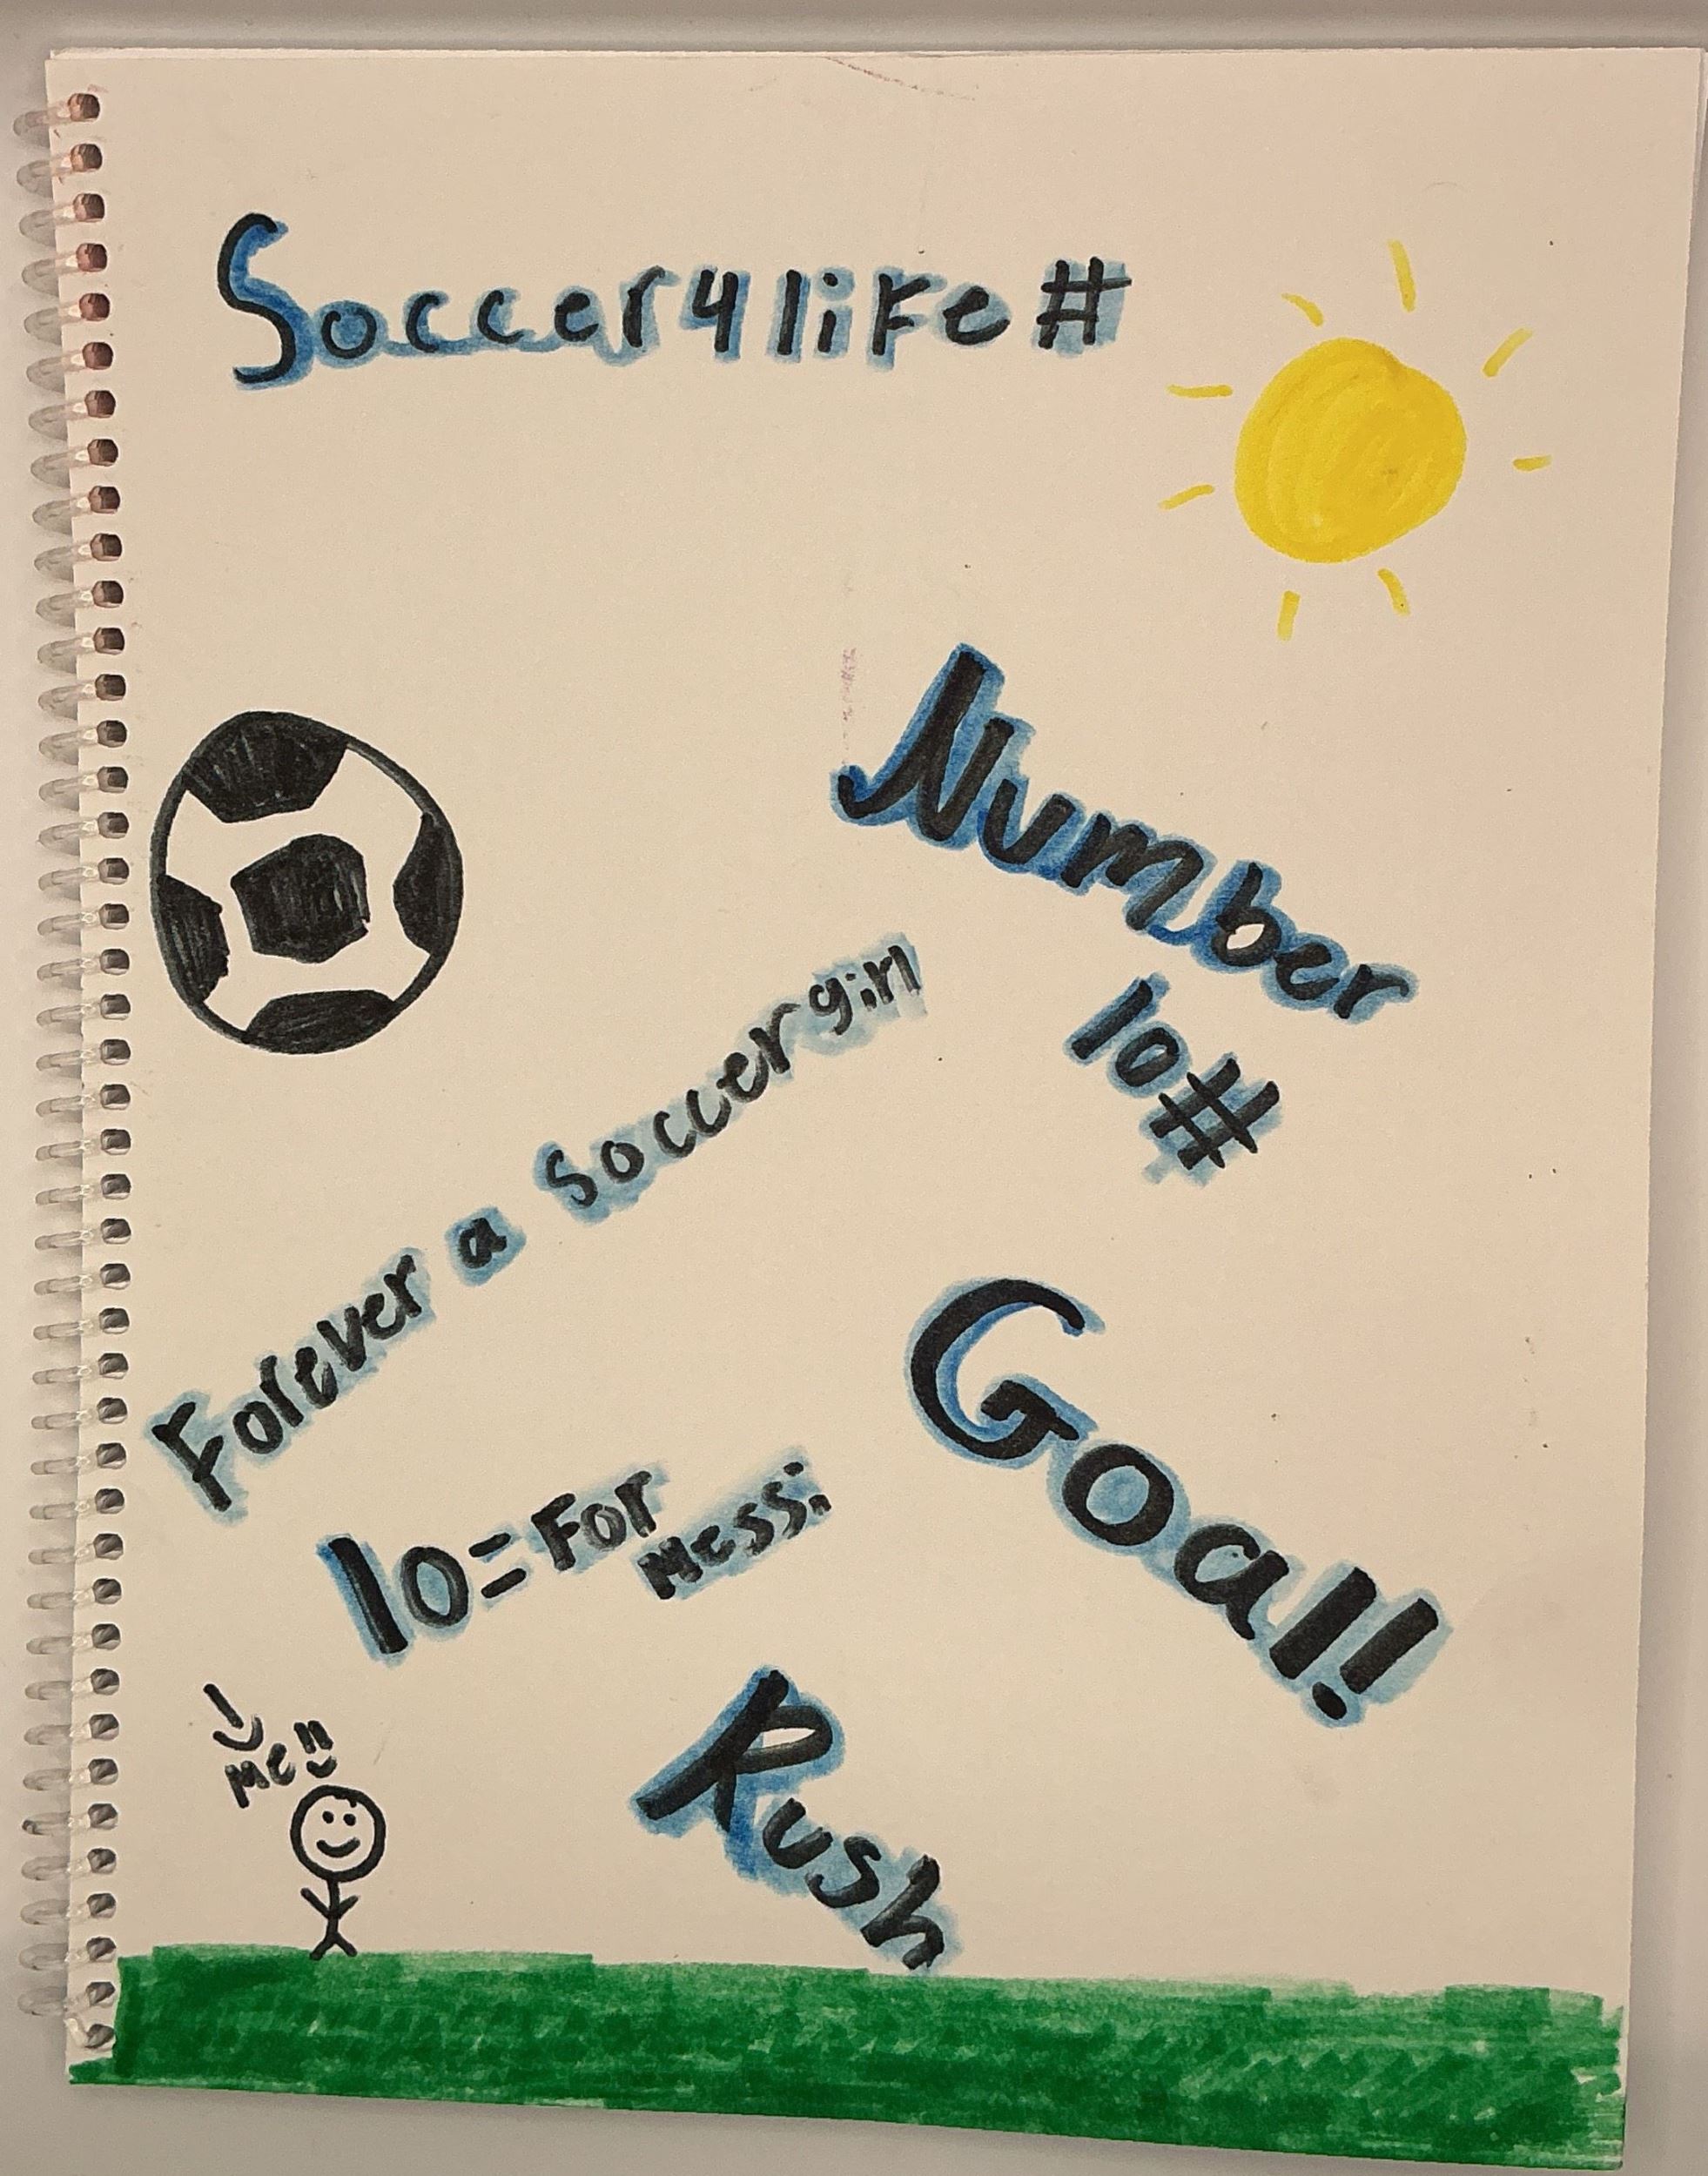 Soccer4life#
Number
10#
Forever a Soccergirl
10=For
Messi
Goal!
Rush
Me!!